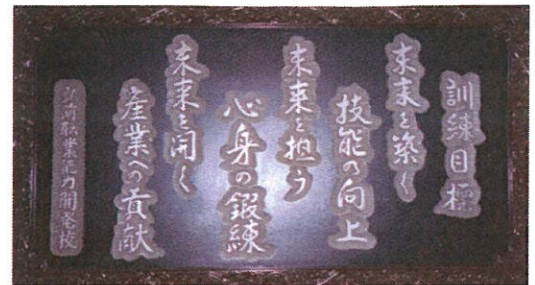 訓練目標
未来を築く
技能の向上
未来を担う
心身の鍛練
未来を開く
産業への貢献
職業能力開発校